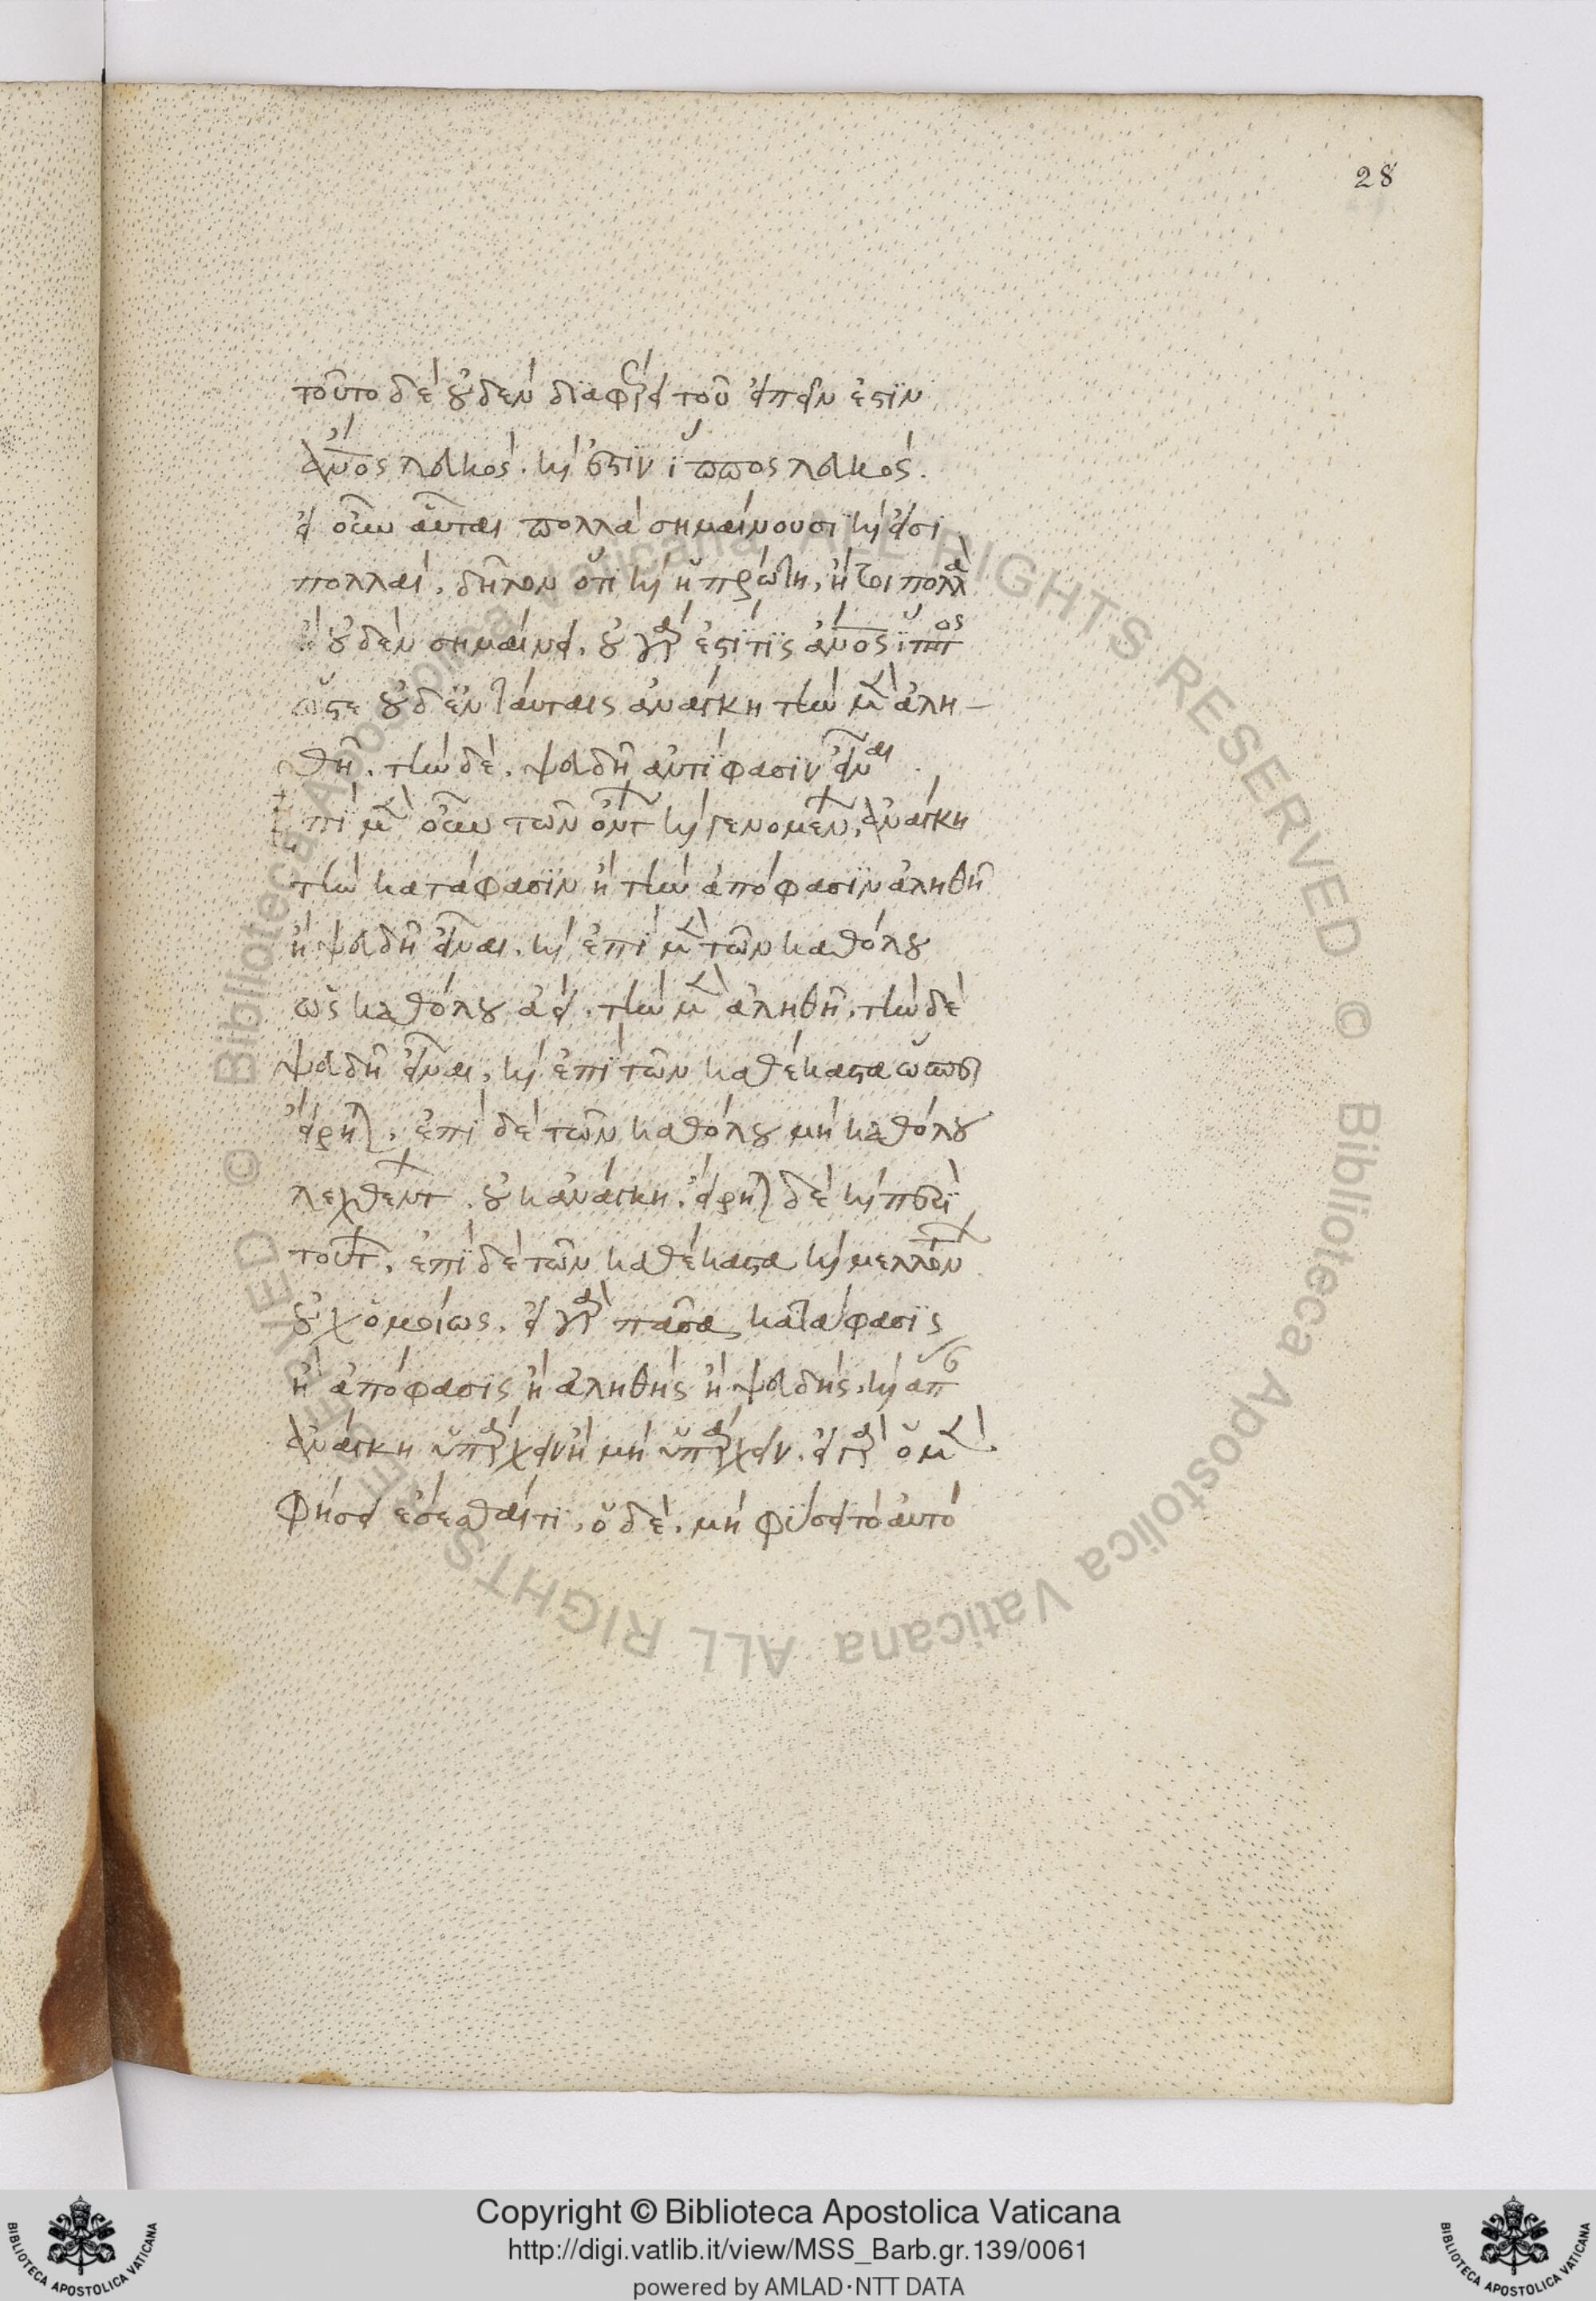 28
τοῦτο δὲ οὐδὲν διαφέρει τοῦ εἰπεῖν ἐστϊν
ἄν̅ο̅ς λευκός. καὶ ἔστϊν ἵππος λευκός.
εἰ οὖν αὗται πολλὰ σημαίνουσϊ καὶ εἰσὶ
πολλαί, δῆλον ὅτι καὶ ἡ πρώτη, ἤτοι πολλὰ
ἢ οὐδὲν σημαίνει. οὐ γάρ ἐστί τϊς ἄν̅ο̅ς ἵππος
ὥστε οὐδ' ἐν ταύταις ἀνάγκη τὴν μὲν ἀλη-
θῆ. τὴν δὲ. ψευδῆ ἀντίφασϊν εἶναι.
πὶ μὲν οὖν τῶν ὄντων καὶ γενομένων, ἀνάγκη
τὴν κατάφασϊν ἢ τὴν ἀπόφασϊν ἀληθῆ
ἢ ψευδῆ εἶναι. καὶ ἐπὶ μὲν τῶν καθόλου
ὡς καθόλου ἀεί. τὴν μὲν ἀληθῆ, τὴν δὲ
ψευδῆ εἶναι, καὶ ἐπὶ τῶν καθέκαστα ὥσπερ
εἴρηται. ἐπὶ δὲ τῶν καθόλου μὴ καθόλου
λεχθέντων. οὐκ ἀνάγκη. εἴρηται δὲ καὶ περὶ
τούτων. ἐπὶ δὲ τῶν καθέκαστα καὶ μελλόντων
οὐχ ὁμοίως. εἰ γὰρ πᾶσα κατάφασϊς
ἢ ἀπόφασϊς ἢ ἀληθὴς ἢ ψευδής. καὶ ἅπαν
ἀνάγκη ὑπάρχειν ἢ μὴ ὑπάρχειν. εἰ γὰρ ὁ μὲν
φήσει ἔσεσθαί τι. ὁ δὲ. μὴ φήσει τὸ αὐτὸ
Copyright © Biblioteca Apostolica Vaticana
http://digi.vatlib.it/view/MSS_Barb.gr.139/0061
powered by AMLAD·NTT DATA
BIBLIOTECA APOSTOLICA VATICANA
BIBLIOTECA APOSTOLICA VATICANA
© Biblioteca Apostolica Vaticana ALL RIGHTS RESERVED © Biblioteca Apostolica Vaticana ALL RIGHTS RESERVED